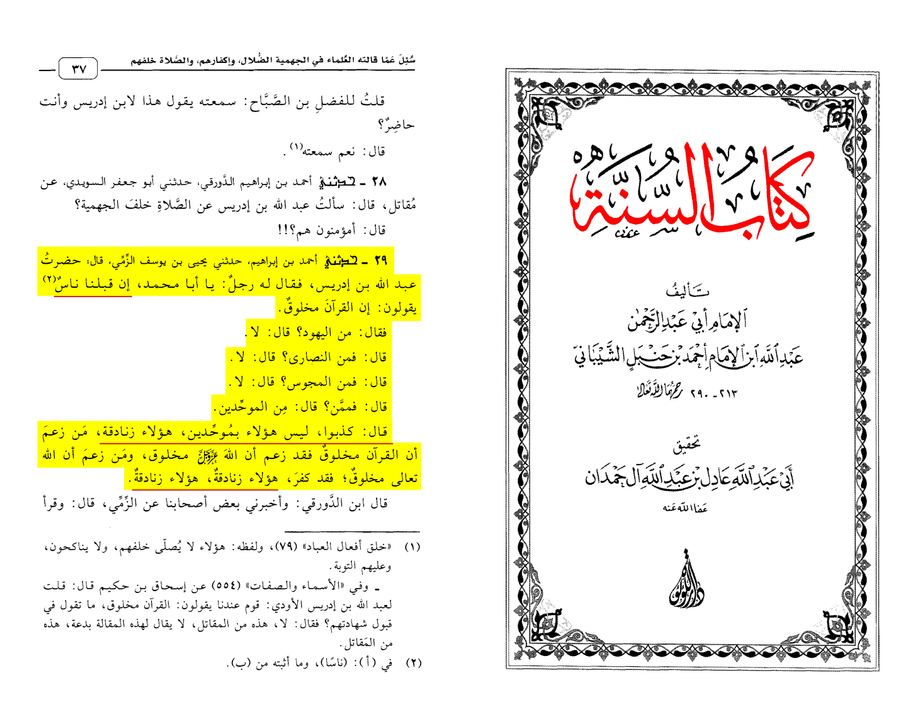 كِتَابُ السُّنَّةِ
تَأليفُ
الإِمَامِ أَبِي عَبْدِ الرَّحْمٰنِ
عَبْدِ اللَّهِ ابْنِ الإِمَامِ أَحْمَدَ بْنِ حَنْبَلٍ الشَّيْبَانِيِّ
٢١٣ - ٢٩٠ رحمهما الله تعالى
تحقيق
أَبِي عَبْدِ اللَّهِ عَادِلِ بْنِ عَبْدِ اللَّهِ آلِ حَمْدَان
عفا الله عنه
دار اللؤلؤة
سُئِلَ عَمّا قالته العُلماء في الجهمية الضُّلال، وإكفارهم، والصَّلاة خلفهم
٣٧
قلتُ للفضلِ بن الصَّبَّاح: سمعته يقول هذا لابن إدريس وأنت
حاضِرٌ؟
قال: نعم سمعته(١).
٢٨ - حدثني أحمد بن إبراهيم الدَّورقي، حدثني أبو جعفر السويدي، عن
مُقاتل، قال: سألتُ عبد الله بن إدريس عن الصَّلاةِ خلفَ الجهمية؟
قال: أمؤمنون هم؟!!
٢٩ - حدثني أحمد بن إبراهيم، حدثني يحيى بن يوسف الزِّمِّي، قال: حضرتُ
عبد الله بن إدريس، فقال له رجلٌ: يا أبا محمد، إن قبلنا ناسٌ(٢)
يقولون: إن القرآنَ مخلوقٌ.
فقال: من اليهود؟ قال: لا.
قال: فمن النصارى؟ قال: لا.
قال: فمن المجوس؟ قال: لا.
قال: فممَّن؟ قال: مِن الموحِّدين.
قال: كذبوا، ليس هؤلاء بمُوحِّدين، هؤلاء زنادقة، مَن زعمَ
أن القرآن مخلوقٌ فقد زعم أن اللهَ ﷿ مخلوق، ومَن زعمَ أن الله
تعالى مخلوقٌ؛ فقد كفرَ، هؤلاء زنادقةٌ، هؤلاء زنادقةٌ.
قال ابن الدَّورقي: وأخبرني بعض أصحابنا عن الزِّمِّي، قال: وقرأ
(١) «خلق أفعال العباد» (٧٩)، ولفظه: هؤلاء لا يُصلّى خلفهم، ولا يناكحون،
وعليهم التوبة.
ـ وفي «الأسماء والصفات» (٥٥٤) عن إسحاق بن حكيم قال: قلت
لعبد الله بن إدريس الأودي: قوم عندنا يقولون: القرآن مخلوق، ما تقول في
قبول شهادتهم؟ فقال: لا، هذه من المقاتل، لا يقال لهذه المقالة بدعة، هذه
من المَقاتل.
(٢) في (أ): (ناسًا)، وما أثبته من (ب).